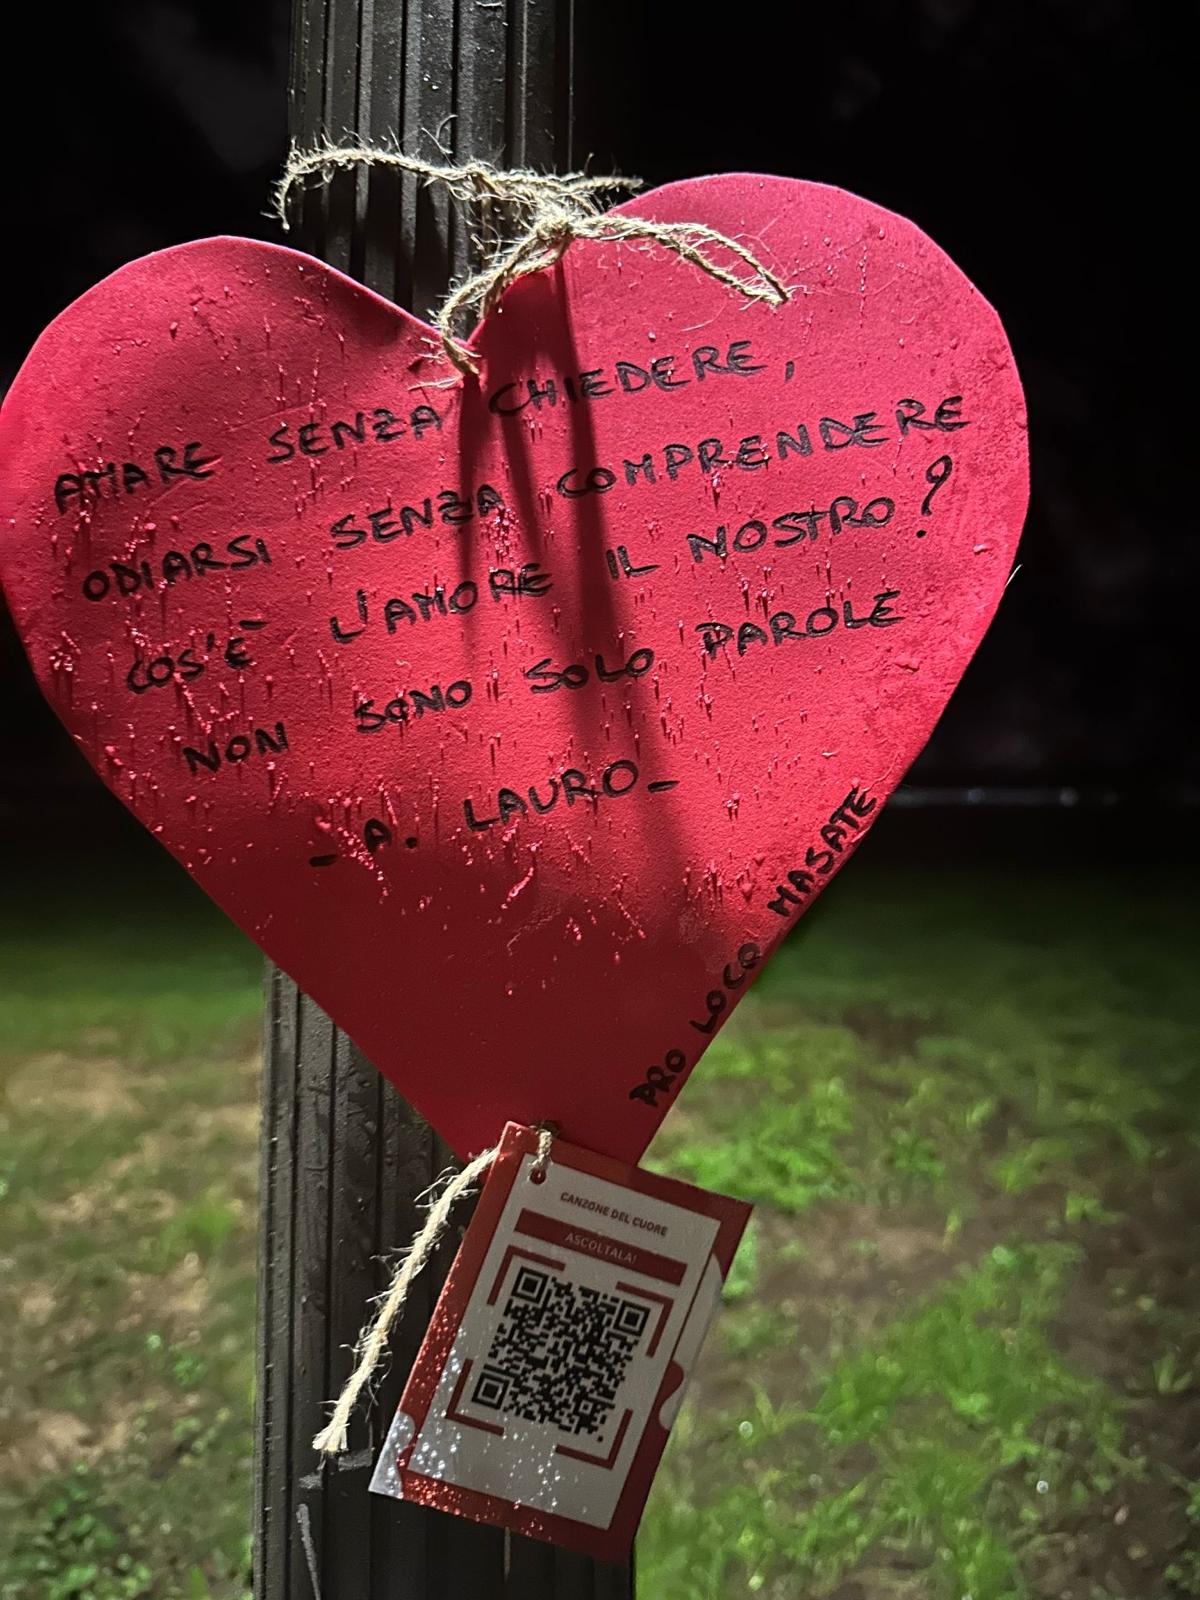 AMARE SENZA CHIEDERE,
ODIARSI SENZA COMPRENDERE
COS'È L'AMORE IL NOSTRO?
NON SONO SOLO PAROLE
- A. LAURO -
PRO LOCO MASATE
CANZONE DEL CUORE
ASCOLTALA!